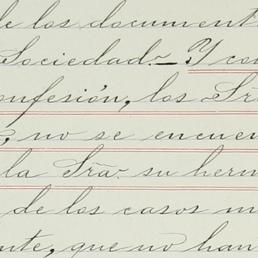 de los document
Sociedad.- Y con
onfesión, los Srs
, no se encuen
la Sra. su herm
de los casos m
nte, que no han